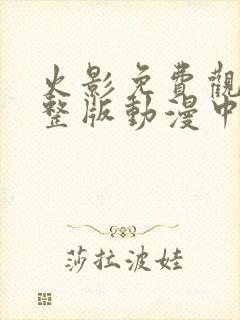 火影免費觀
整版動漫中
莎拉波娃